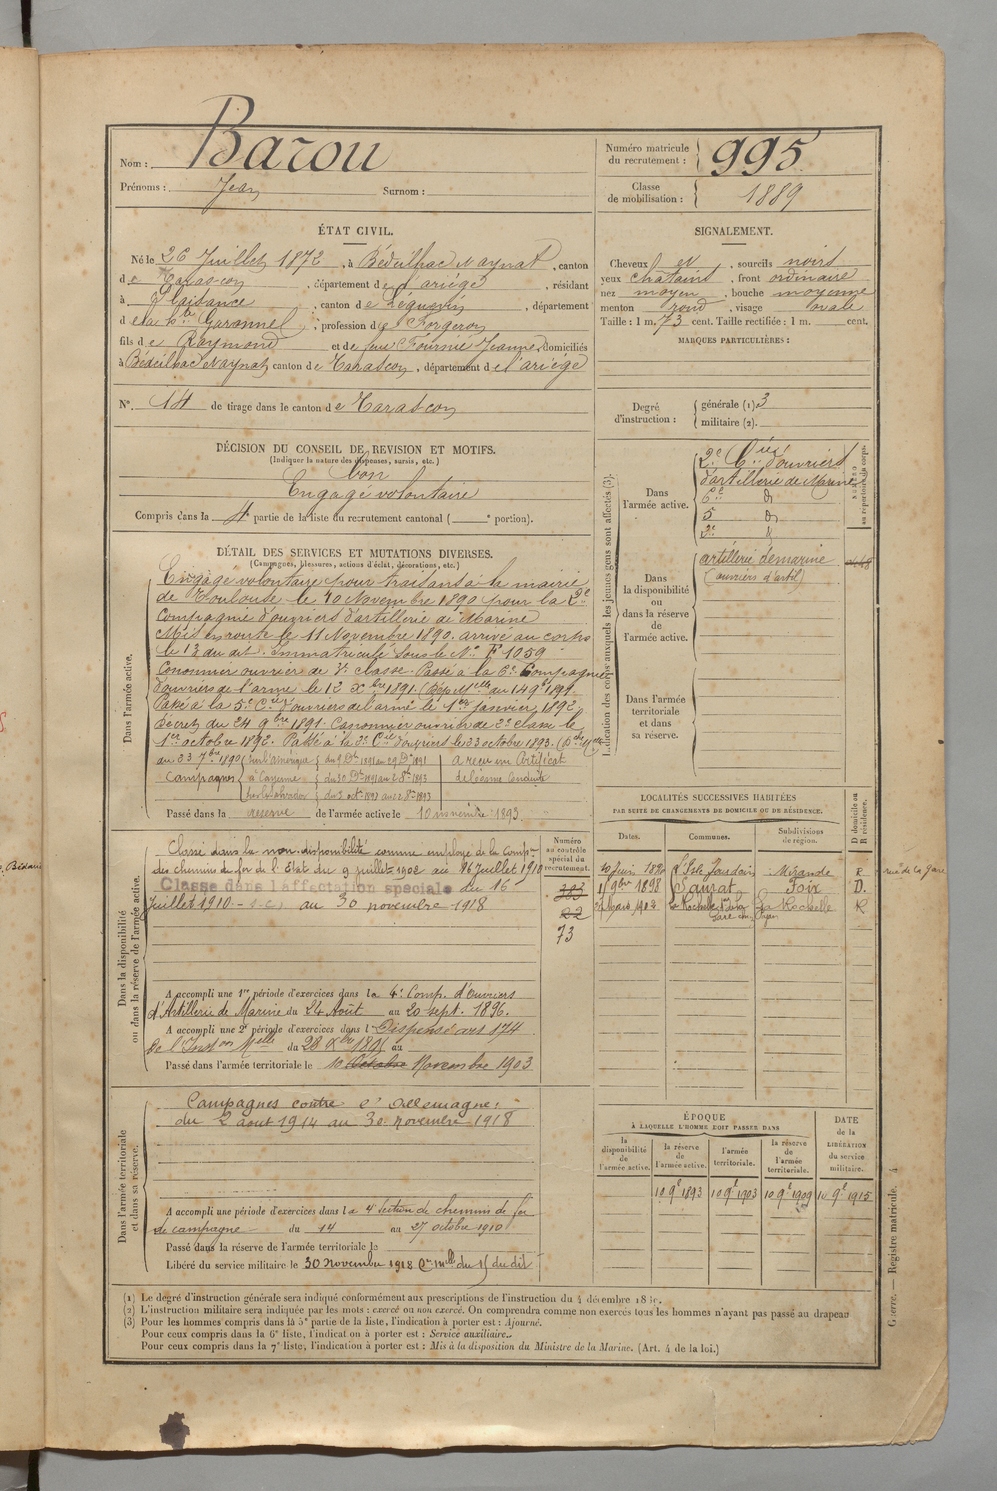 Nom : Barou
Prénoms : Jean Surnom :
Numéro matricule du recrutement : 995
Classe de mobilisation : 1889
ÉTAT CIVIL.
Né le 26 Juillet 1872, à Bédeilhac Aynat, canton
de Tarascon, département de l'ariége, résidant
à Plaisance, canton de Léguevin, département
de la Hte Garonne, profession de Forgeron
fils de Raymond et de feue Fournié Jeanne, domiciliés
à Bédeilhac Aynat, canton de Tarascon, département de l'ariége
N°. 14 de tirage dans le canton de Tarascon
SIGNALEMENT.
Cheveux et, sourcils noirs
yeux chatains, front ordinaire
nez moyen, bouche moyenne
menton rond, visage ovale
Taille : 1 m. 73 cent. Taille rectifiée : 1 m. cent.
MARQUES PARTICULIÈRES :
Degré d'instruction : générale (1) 3
militaire (2).
DÉCISION DU CONSEIL DE REVISION ET MOTIFS.
(Indiquer la nature des dispenses, sursis, etc.)
bon
Engagé volontaire
Compris dans la 4e partie de la liste du recrutement cantonal ( e portion).
DÉTAIL DES SERVICES ET MUTATIONS DIVERSES.
(Campagnes, blessures, actions d'éclat, décorations, etc.)
Dans l'armée active.
Engagé volontaire pour trois ans à la mairie
de Toulouse le 10 Novembre 1890 pour la 2e
Compagnie d'ouvriers d'artillerie de Marine
Mis en route le 11 Novembre 1890. arrivé au corps
le 13 du dit. Immatriculé sous le N° F 1059
Canonnier ouvrier de 3e classe. Passé à la 6e Compagnie
d'ouvriers de l'arme le 12 Xbre 1891. (Dép. Mlle du 14 9bre 1891.
Passé à la 5e Cie d'ouvriers de l'arme le 1er Janvier 1892
Décret du 24 9bre 1891. Canonnier ouvrier de 2e classe le
1er octobre 1892. Passé à la 3e Cie d'ouvriers le 23 octobre 1893. (Dche Mlle
du 23 7bre 1893
Campagnes
à Cayenne
du 9 Dbre 1891 au 29 Dbre 1891
du 30 Dbre 1891 au 2 8bre 1893
du 3 octbre 1893 au 22 8bre 1893
a reçu un Certificat
de bonne Conduite
Passé dans la réserve de l'armée active le 10 novembre 1893
Indication des corps auxquels les jeunes gens sont affectés (3).
Dans l'armée active.
2e Cie d'ouvriers
d'artillerie de Marine
6e do
5 do
3e do
NUMÉRO au répertoire du corps.
Dans la disponibilité ou dans la réserve de l'armée active.
artillerie de marine
(ouvriers d'artil)
Dans l'armée territoriale et dans sa réserve.
Dans la disponibilité ou dans la réserve de l'armée active.
Numéro au contrôle spécial du recrutement.
Classé dans la non disponibilité comme employé de la Compie
des chemins de fer de l'Etat du 9 juillet 1902 au 16 Juillet 1910
Classé dans l'affectation spéciale du 16
Juillet 1910 au 30 novembre 1918
383
22
73
A accompli une 1re période d'exercices dans la 4e Comp. d'Ouvriers
d'Artillerie de Marine du 24 Août au 20 sept. 1896.
A accompli une 2e période d'exercices dans l Dispensé art 174
de l'Inston Mlle du 28 Xbre 1895 au
Passé dans l'armée territoriale le 10 Octobre Novembre 1903
LOCALITÉS SUCCESSIVES HABITÉES
PAR SUITE DE CHANGEMENTS DE DOMICILE OU DE RÉSIDENCE.
Dates. Communes. Subdivisions de région. D domicile ou R résidence.
10 Juin 1894 l'Isle Jourdain Mirande R rue de la Gare
1 9bre 1898 Saurat Foix D.
Mars 1902 La Rochelle La Rochelle R
Dans l'armée territoriale et dans sa réserve.
Campagnes contre l'Allemagne :
du 2 aout 1914 au 30 novembre 1918
A accompli une période d'exercices dans la 4e Section de chemins de fer
de campagne du 14 au 27 octobre 1910
Passé dans la réserve de l'armée territoriale le
Libéré du service militaire le 30 novembre 1918 Cre mlle du 15 du dit
ÉPOQUE À LAQUELLE L'HOMME DOIT PASSER DANS
la disponibilité de l'armée active.
la réserve de l'armée active.
l'armée territoriale.
la réserve de l'armée territoriale.
DATE de la LIBÉRATION du service militaire.
10 9bre 1893 10 9bre 1903 10 9bre 1909 10 9bre 1915
(1) Le degré d'instruction générale sera indiqué conformément aux prescriptions de l'instruction du 4 décembre 18
(2) L'instruction militaire sera indiquée par les mots : exercé ou non exercé. On comprendra comme non exercés tous les hommes n'ayant pas passé au drapeau
(3) Pour les hommes compris dans la 5e partie de la liste, l'indication à porter est : Ajourné.
Pour ceux compris dans la 6e liste, l'indication à porter est : Service auxiliaire.
Pour ceux compris dans la 7e liste, l'indication à porter est : Mis à la disposition du Ministre de la Marine. (Art. 4 de la loi.)
Guerre. — Registre matricule. 4